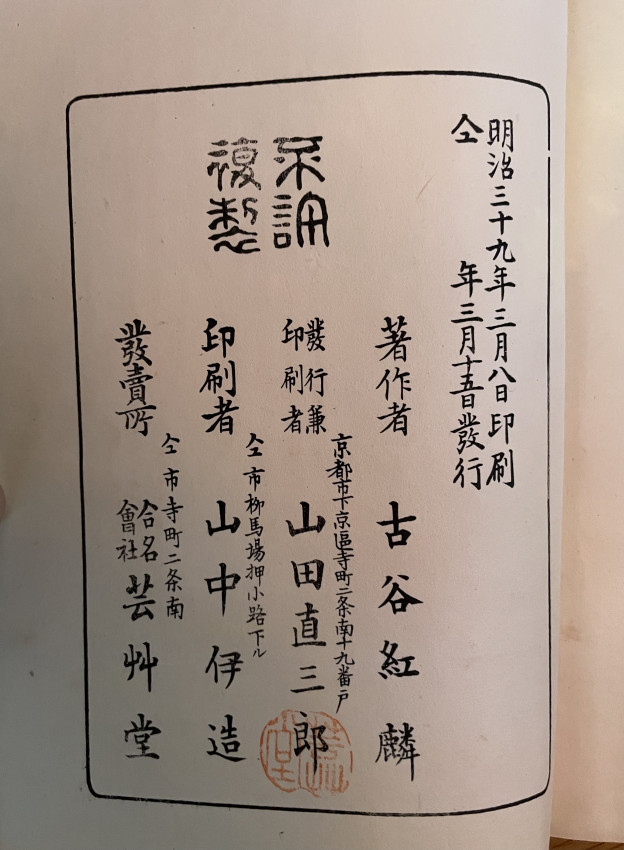 明治三十九年三月八日印刷
仝年三月十五日發行
不許
複製
著作者 古谷紅麟
京都市下京區寺町二条南十九番戸
發行兼
印刷者 山田直三郎
仝市柳馬場押小路下ル
印刷者 山中伊造
仝市寺町二条南
發賣所 合名
會社 芸艸堂